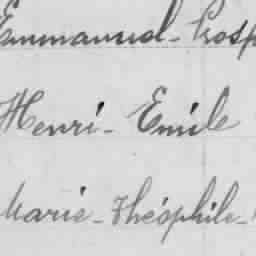 Emmanuel - Prosp
Henri - Emile
Marie - Théophile -